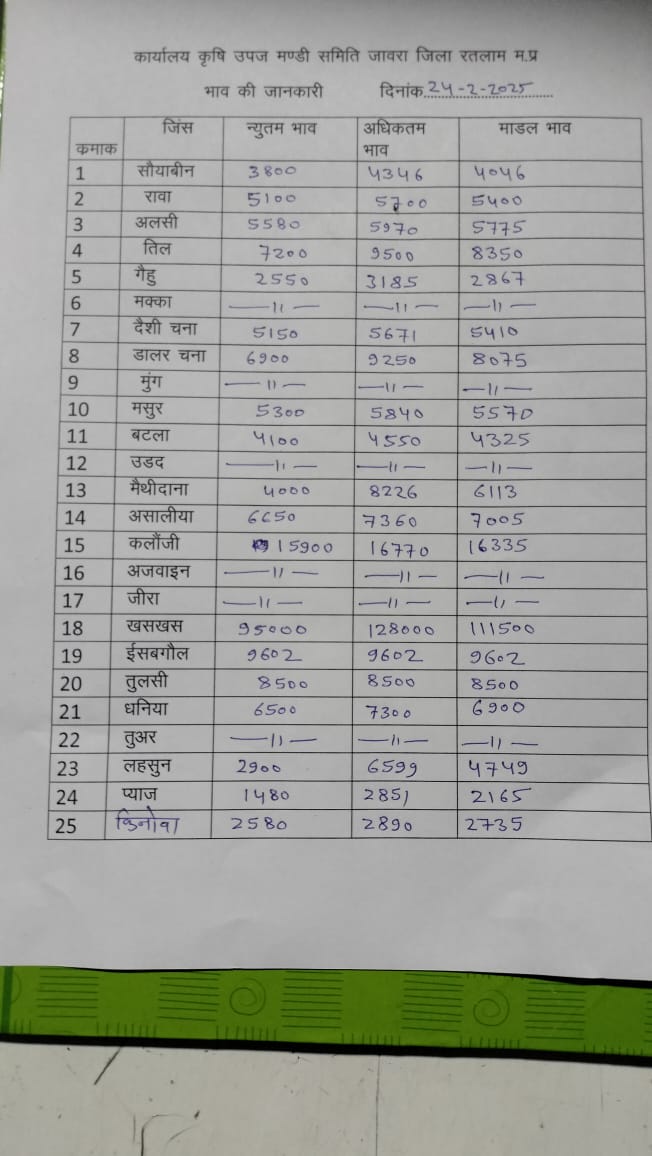 कार्यालय कृषि उपज मण्डी समिति जावरा जिला रतलाम म.प्र
भाव की जानकारी दिनांक 24-2-2025
कमाक जिंस न्युतम भाव अधिकतम भाव माडल भाव
1 सौयाबीन 3800 4346 4046
2 रावा 5100 5700 5400
3 अलसी 5580 5970 5775
4 तिल 7200 9500 8350
5 गैहु 2550 3185 2867
6 मक्का —11— —11— —11—
7 दैशी चना 5150 5671 5410
8 डालर चना 6900 9250 8075
9 मुंग —11— —11— —11—
10 मसुर 5300 5840 5570
11 बटला 4100 4550 4325
12 उडद —11— —11— —11—
13 मैथीदाना 4000 8226 6113
14 असालीया 6650 7360 7005
15 कलौंजी 15900 16770 16335
16 अजवाइन —11— —11— —11—
17 जीरा —11— —11— —11—
18 खसखस 95000 128000 111500
19 ईसबगौल 9602 9602 9602
20 तुलसी 8500 8500 8500
21 धनिया 6500 7300 6900
22 तुअर —11— —11— —11—
23 लहसुन 2900 6599 4749
24 प्याज 1480 2851 2165
25 किनोवा 2580 2890 2735